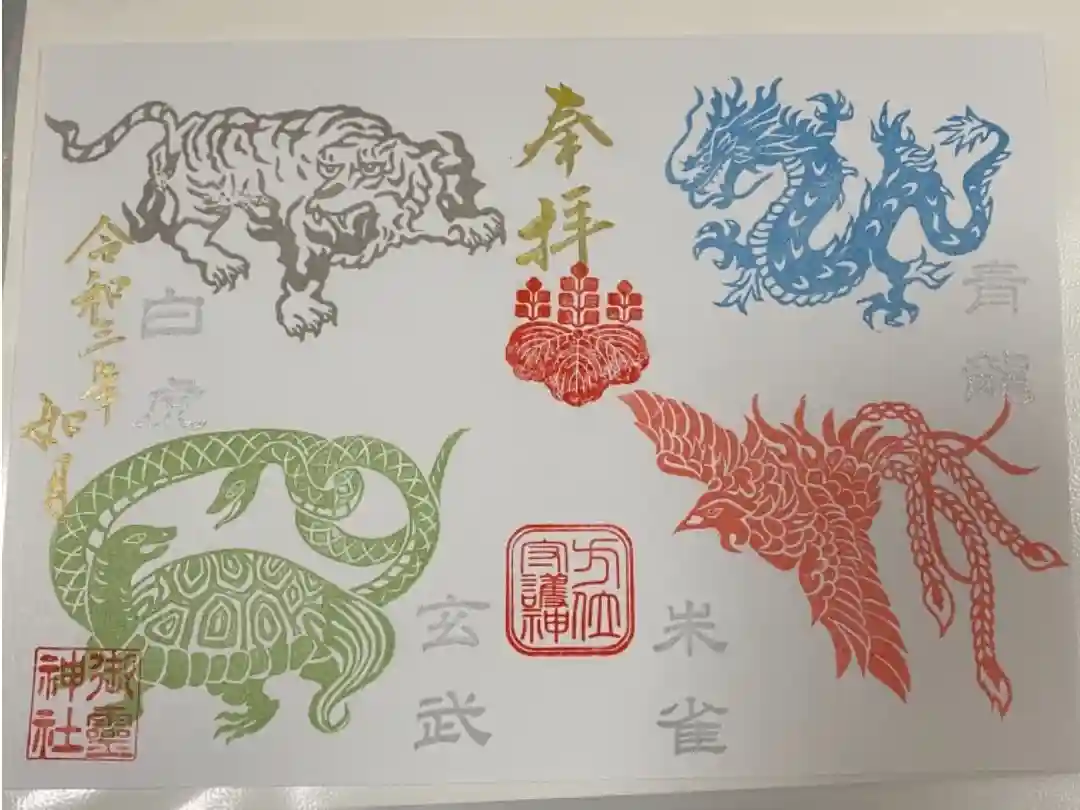 奉拝
青龍
朱雀
方位
守護神
白虎
玄武
令和三年
如月
御靈
神社